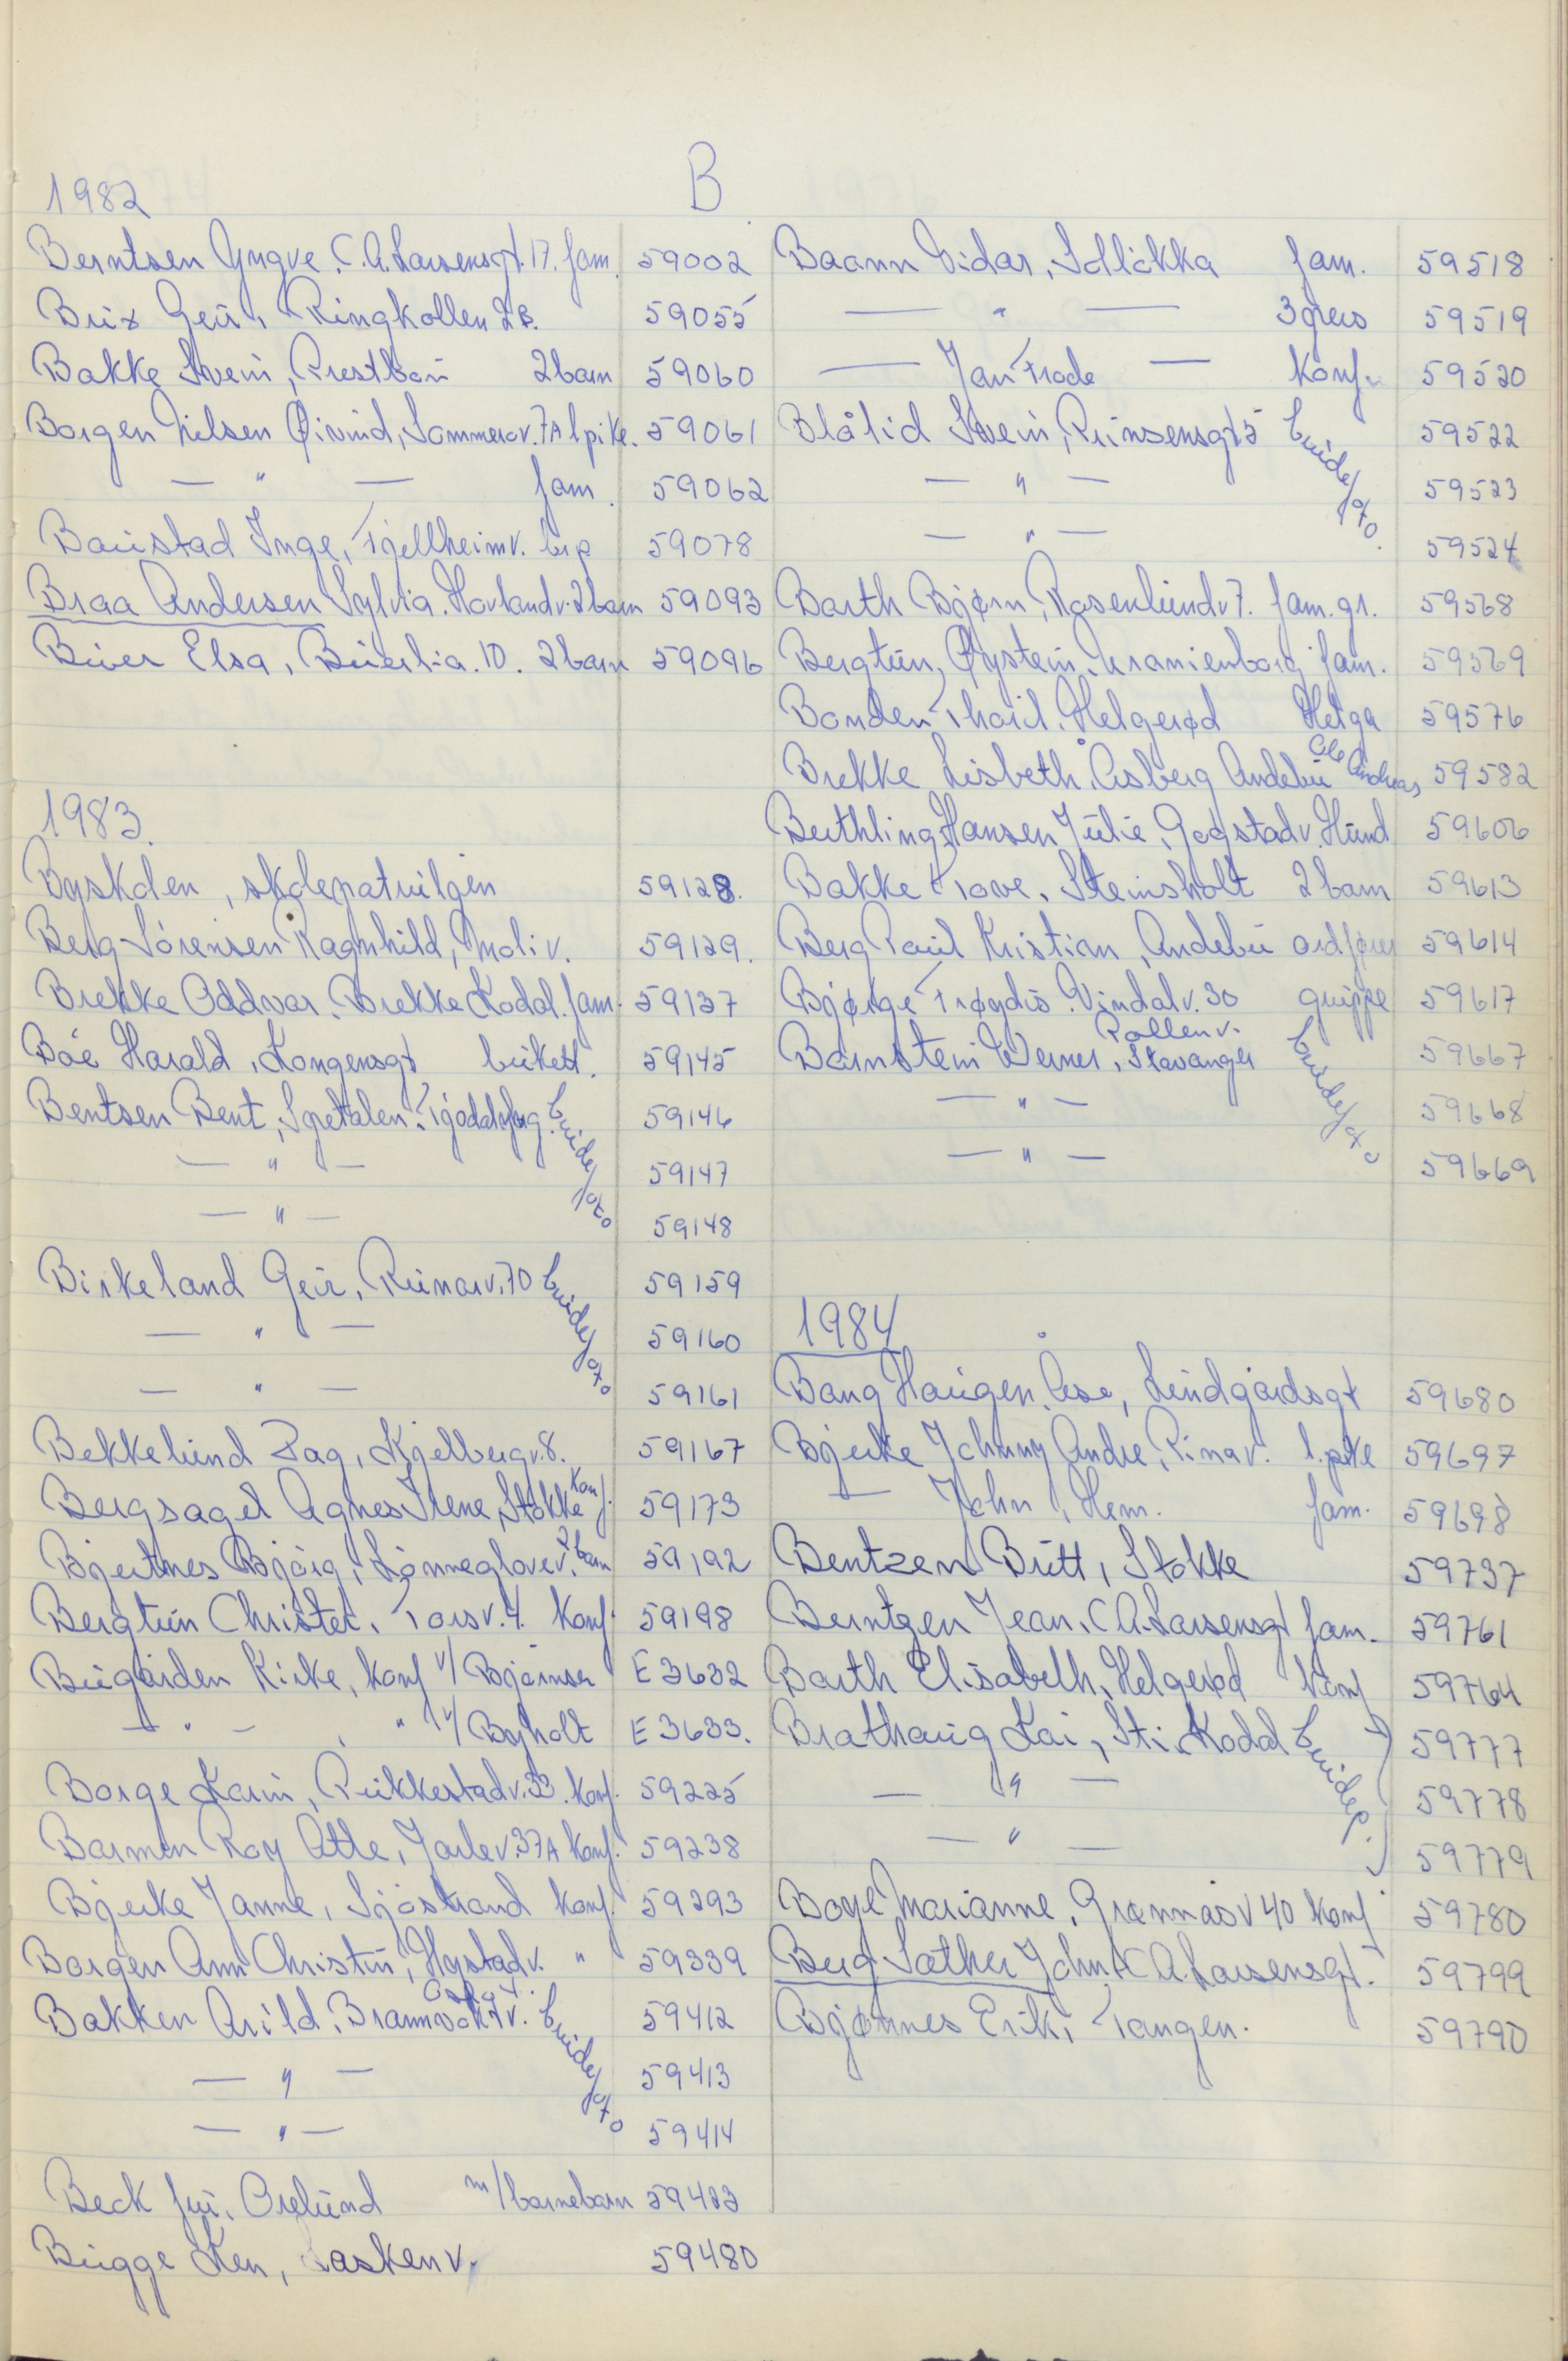 B
1982
Berntsen Yngve, C.A. Larsensgt. 17. fam. 59002
Brix Geir, Ringkollen 2B. 59055
Bakke Svein, Prestbøen 2 barn 59060
Borgen Nilsen Øivind, Sommerov. 7A 1 pike. 59061
— " — fam. 59062
Baustad Inge, Fjellheimv. brp 59078
Braa Andersen Sylvia. Havlandv. 2 barn 59093
Buer Elsa, Buerlia. 10. 2 barn 59096
1983.
Byskolen, skolepatruljen 59128.
Berg-Sørensen Ragnhild, Moliv. 59129.
Brekke Oddvar. Brekke Kodal. fam. 59137
Bøe Harald, Kongensgt bukett. 59145
Bentsen Bent, Tjødalyng. brudefoto 59146
— " — 59147
— " — 59148
Birkeland Geir, Runarv. 70 brudefoto 59159
— " — 59160
— " — 59161
Bekkelund Dag, Kjelbergv. 8. 59167
Bergsagel Agnes Irene, Stokke konf. 59173
Bjertnes Bjørg, Lønnegløvev. 2 barn 59192
Bergtun Christer, Torsv. 4. konf. 59198
Bugården Kirke, konf v/ Bjørnser E 3632
— " — , " v/ Byholt E 3633.
Borge Karin, Pukkestadv. 33. konf. 59225
Barmen Roy Atle, Jarlev. 37A konf. 59238
Bjerke Janne, Sjøstrand konf. 59293
Borgen Ann Christin, Hystadv. " 59339
Bakken Arild, v. brudefoto 59412
— " — 59413
— " — 59414
Beck fru, Orelund m/barnebarn 59423
Bugge Ken, askenv. 59480
Baann Vidar, Solløkka fam. 59518
— " — 3 gress 59519
— Jan Frode — konf. 59520
Blålid Svein, Prinsensgt 5 brudefoto. 59522
— " — 59523
— " — 59524
Barth Bjørn, Rosenlundv 7. fam. gr. 59568
Bergtun, Øystein, Uranienborg fam. 59569
Bonden Thoril. Helgerød Helga 59576
Brekke Lisbeth, Åsberg Andebu Ole Andreas 59582
Berthling Hansen Julie, Gogstadv. Hund 59606
Bakke Tove, Steinsholt 2 barn 59613
Berg Paul Kristian, Andebu ordfører 59614
Bjørge Frøydis. Vindalv. 30 gruppe 59617
Pollenv.
Barnstein Werner, Stavanger brudefoto 59667
— " — 59668
— " — 59669
1984
Bang Haugen Åse, Lindgårdsgt 59680
Bjerke Johnny Andre, Rinav. 1. pike 59697
— John, Hem. fam. 59698
Bentzen Britt, Stokke 59737
Berntzen Jean, C A. Larsensgt fam. 59761
Barth Elisabeth, Helgerød konf 59764
Brathaug Kai, Sti Kodal brudep. 59777
— " — 59778
— " — 59779
Boye Marianne, Grønnåsv 40 konf 59780
Berg Sæther John, C A. Larsensgt. 59799
Bjønnes Erik, Tangen. 59790